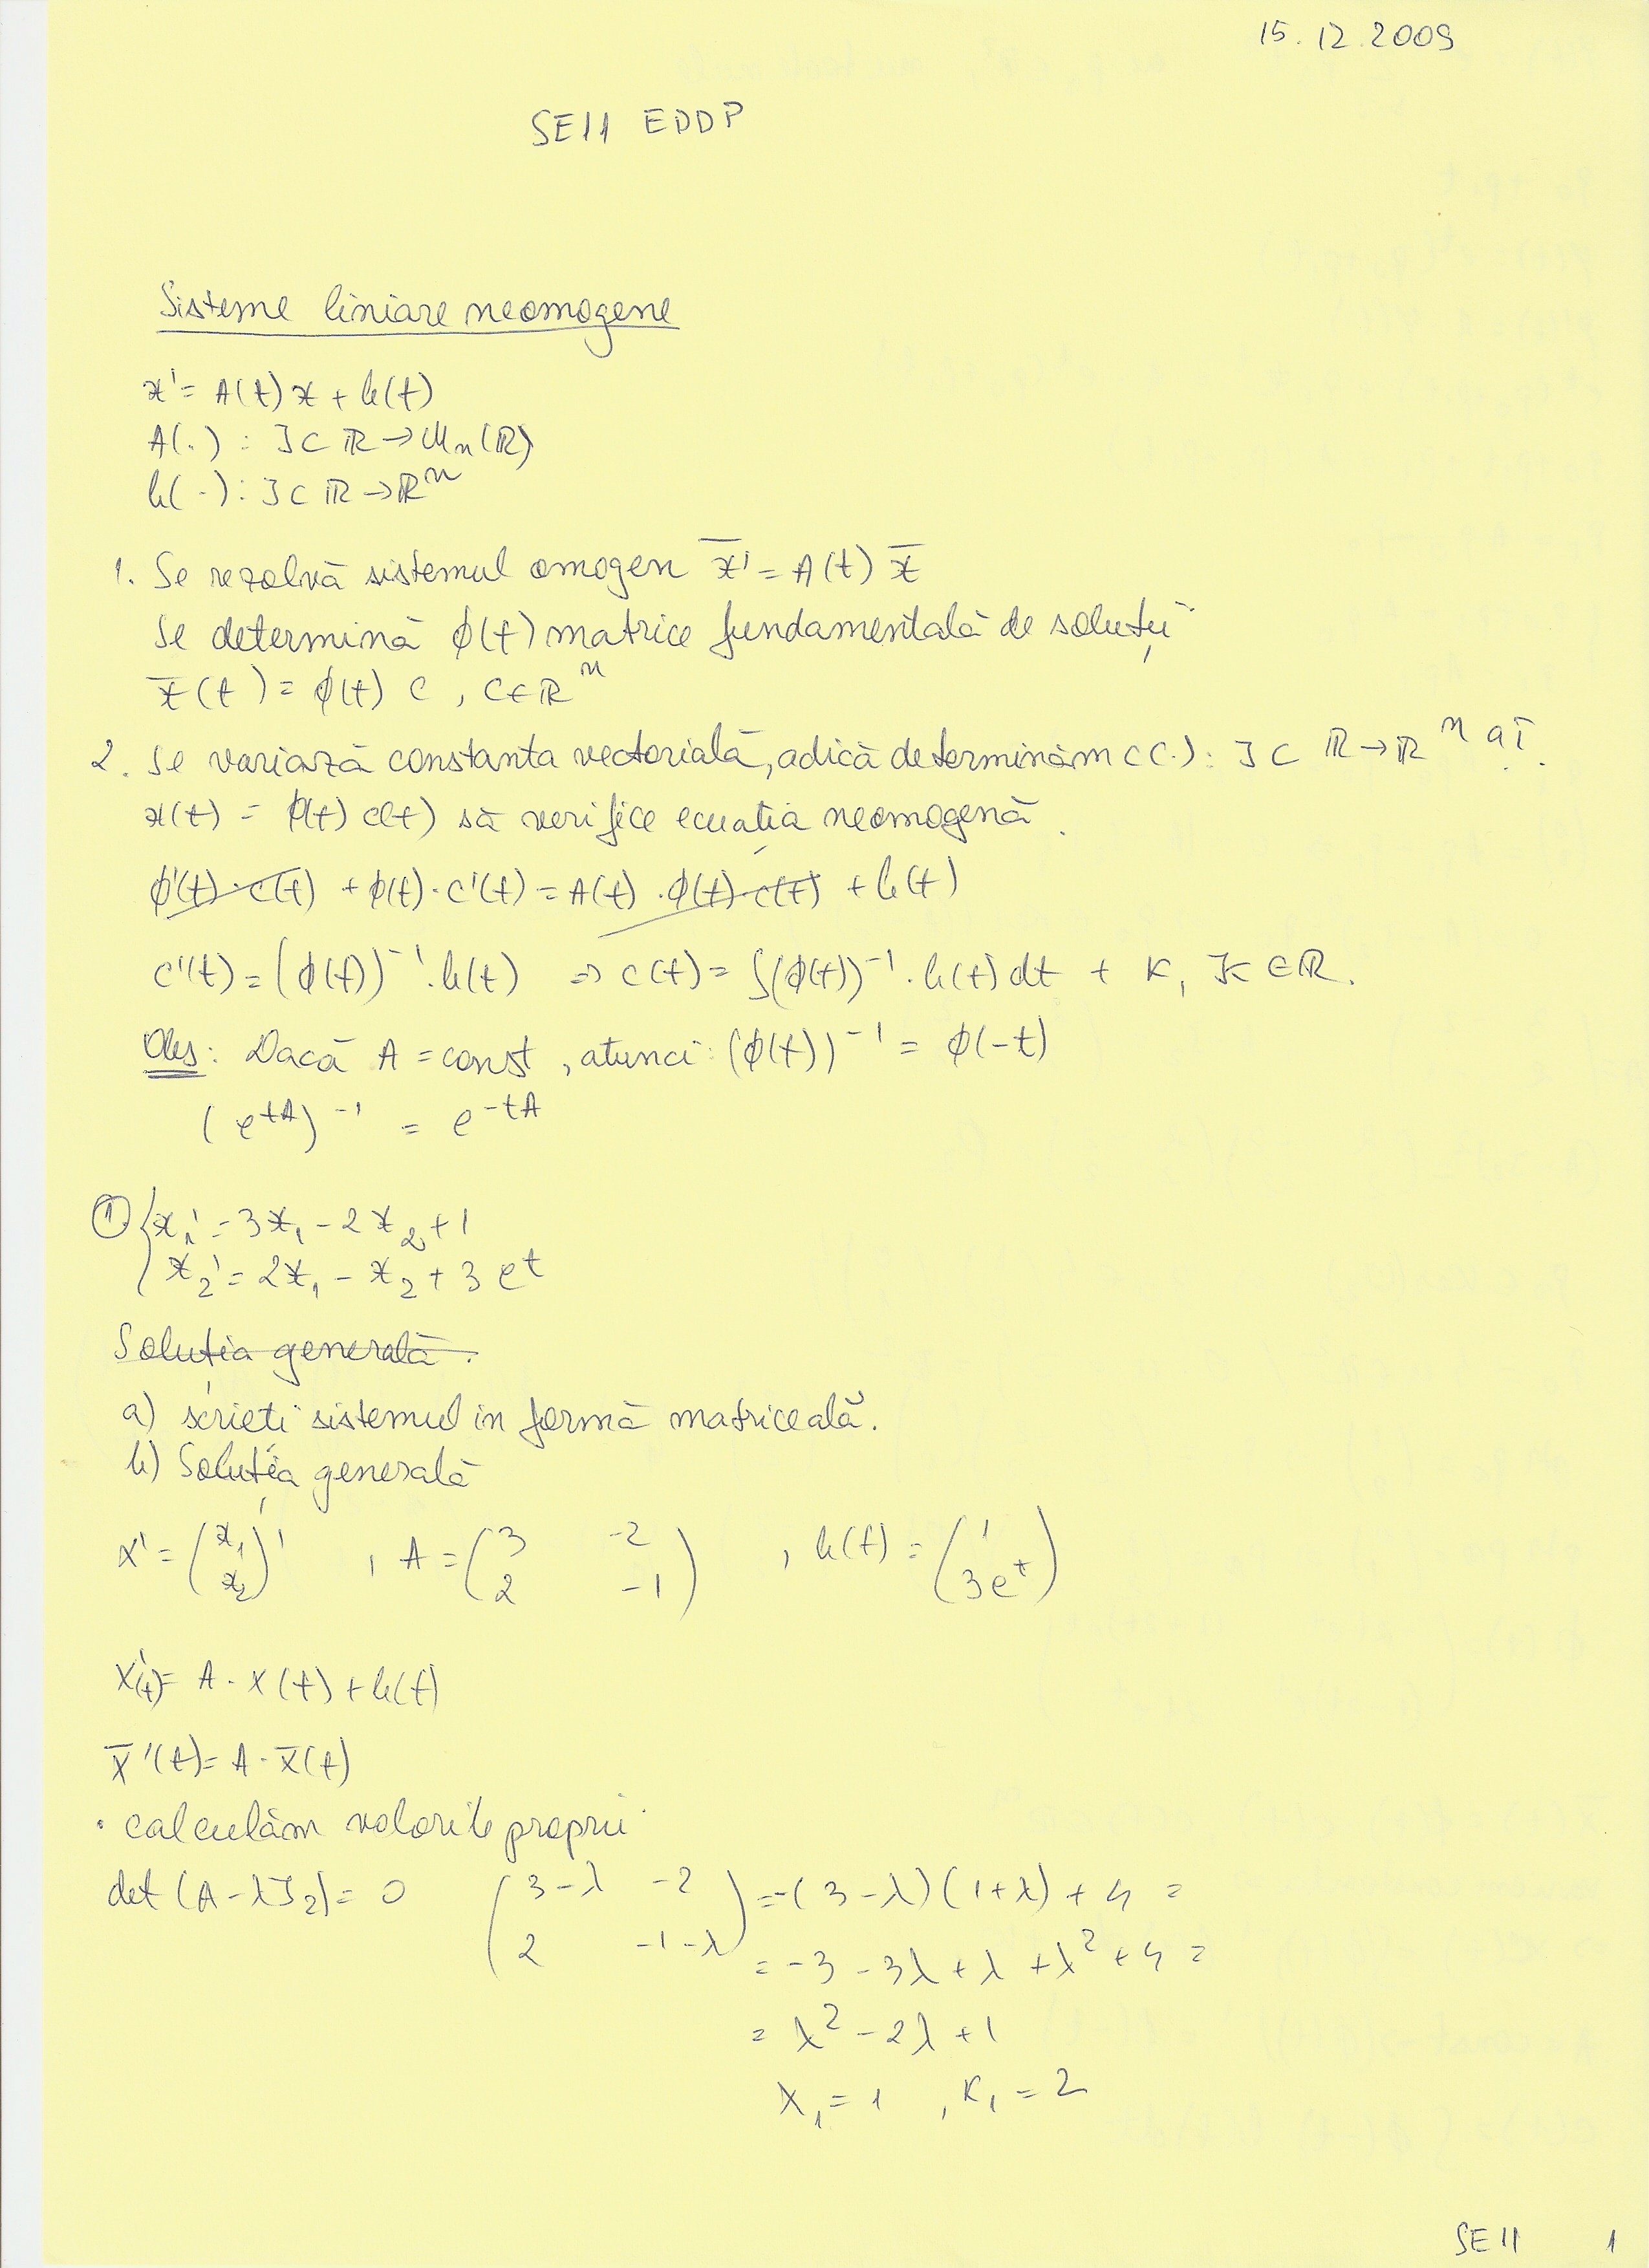 15.12.2009
SE11 EDDP
Sisteme liniare neomogene
x' = A(t)x + b(t)
A(.) : J ⊂ ℝ → Mn(ℝ)
b(.) : J ⊂ ℝ → ℝ^n
1. Se rezolvă sistemul omogen x̄' = A(t) x̄
Se determină ϕ(t) matrice fundamentală de soluții
x̄(t) = ϕ(t) c , c ∈ ℝ^n
2. Se variază constanta vectorială, adică determinăm c(.) : J ⊂ ℝ → ℝ^n aî.
x(t) = ϕ(t) c(t) să verifice ecuația neomogenă.
ϕ'(t)·c(t) + ϕ(t)·c'(t) = A(t)·ϕ(t)·c(t) + b(t)
c'(t) = (ϕ(t))^-1 · b(t) ⇒ c(t) = ∫(ϕ(t))^-1 · b(t) dt + K, K ∈ ℝ.
Obs: Dacă A = const, atunci: (ϕ(t))^-1 = ϕ(-t)
(e^tA)^-1 = e^-tA
① { x1' = 3x1 - 2x2 + 1
x2' = 2x1 - x2 + 3e^t
Soluția generală.
a) scrieți sistemul in formă matriceală.
b) Soluția generală
x' = (x1 x2)' , A = (3 -2 2 -1) , b(t) = (1 3e^t)
x'(t) = A·x(t) + b(t)
x̄'(t) = A·x̄(t)
· calculăm valorile proprii
det(A - λJ2) = 0 (3-λ -2 2 -1-λ) = -(3-λ)(1+λ) + 4 =
= -3 - 3λ + λ + λ² + 4 =
= λ² - 2λ + 1
λ1 = 1 , K1 = 2
SE11 1